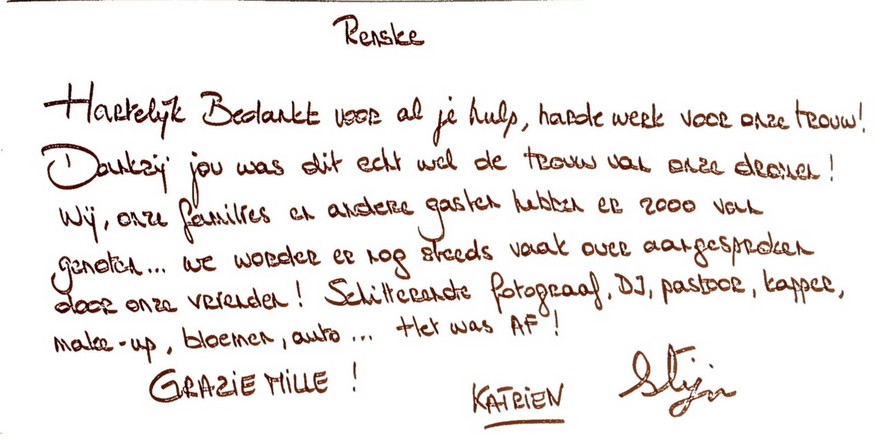 Renske
Hartelijk Bedankt voor al je hulp, harde werk voor onze trouw!
Dankzij jou was dit echt wel de trouw van onze dromen!
Wij, onze families en andere gasten hebben er zooo van
genoten... we worden er nog steeds vaak over aangesproken
door onze vrienden! Schitterende fotograaf, DJ, pastoor, kapper,
make-up, bloemen, auto... Het was AF!
GRAZIE MILLE!
KATRIEN Stijn